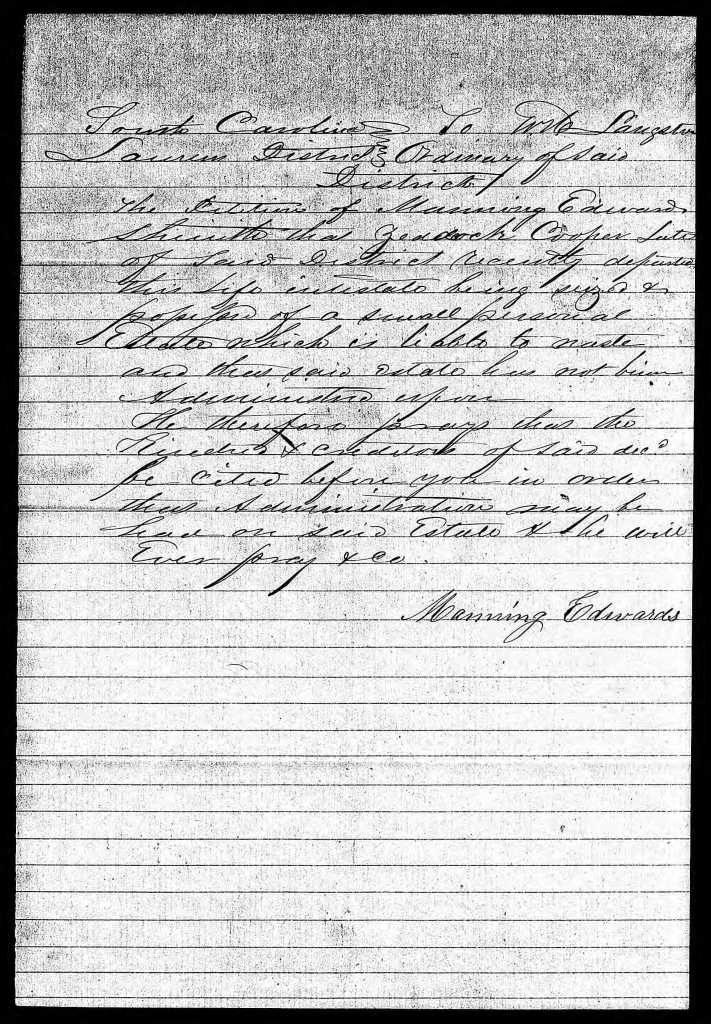 South Carolina } To W.D. Langston
Laurens District } Ordinary of said
District
The Petition of Manning Edwards
Sheweth that Zeadock Cooper Late
of said District recently departed
this Life intestate being seized &
possessed of a small personal
Estate which is liable to waste
and that said estate has not been
Administered upon
He therefore prays that the
Kindred & creditors of said decd
be Cited before you in order
that Administration may be
had on said Estate & he will
Ever pray &co.
Manning Edwards